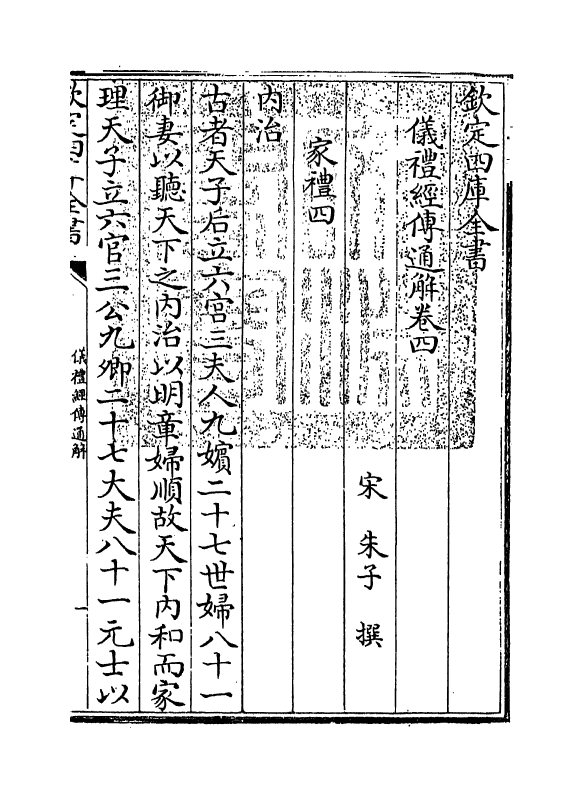 欽定四庫全書
儀禮經傳通解卷四
宋 朱子 撰
家禮四
内治
古者天子后立六宫三夫人九嬪二十七世婦八十一
御妻以聽天下之内治以明章婦順故天下内和而家
理天子立六官三公九卿二十七大夫八十一元士以
欽定四庫全書
儀禮經傳通解
一